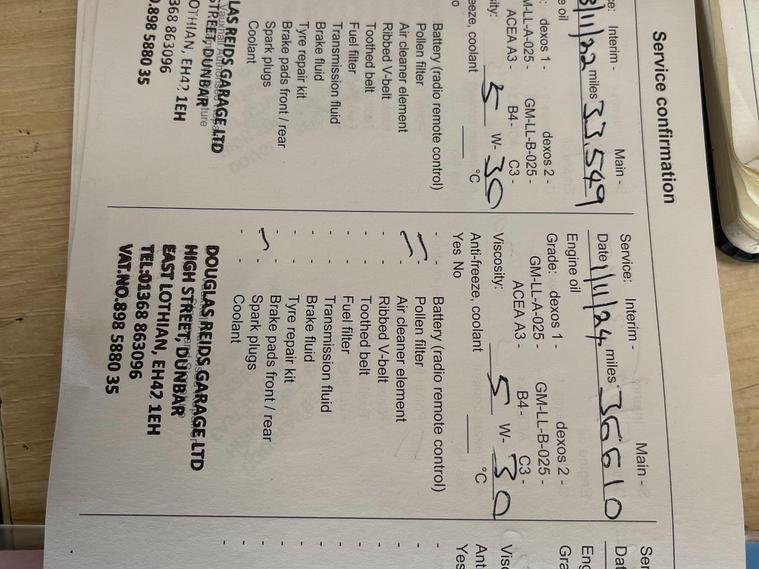 Service confirmation
Interim - Main -
3/11/22 miles 33,549
dexos 1 - dexos 2 -
GM-LL-A-025 - GM-LL-B-025 -
ACEA A3 - B4 - C3 -
5 W- 30
coolant °C
Battery (radio remote control)
Pollen filter
Air cleaner element
Ribbed V-belt
Toothed belt
Fuel filter
Transmission fluid
Brake fluid
Tyre repair kit
Brake pads front / rear
Spark plugs
Coolant
LAS REIDS GARAGE LTD
TREET, DUNBAR
OTHIAN, EH42 1EH
368 863096
.898 5880 35
Service: Interim - Main -
Date 1/11/24 miles 36610
Engine oil
Grade: dexos 1 - dexos 2 -
GM-LL-A-025 - GM-LL-B-025 -
ACEA A3 - B4 - C3 -
Viscosity: 5 W- 30
Anti-freeze, coolant °C
Yes No
- - Battery (radio remote control)
- Pollen filter
- Air cleaner element
- - Ribbed V-belt
- - Toothed belt
- - Fuel filter
- - Transmission fluid
- - Brake fluid
- - Tyre repair kit
- - Brake pads front / rear
- Spark plugs
- - Coolant
DOUGLAS REIDS GARAGE LTD
HIGH STREET, DUNBAR
EAST LOTHIAN, EH42 1EH
TEL:01368 863096
VAT.NO.898 5880 35